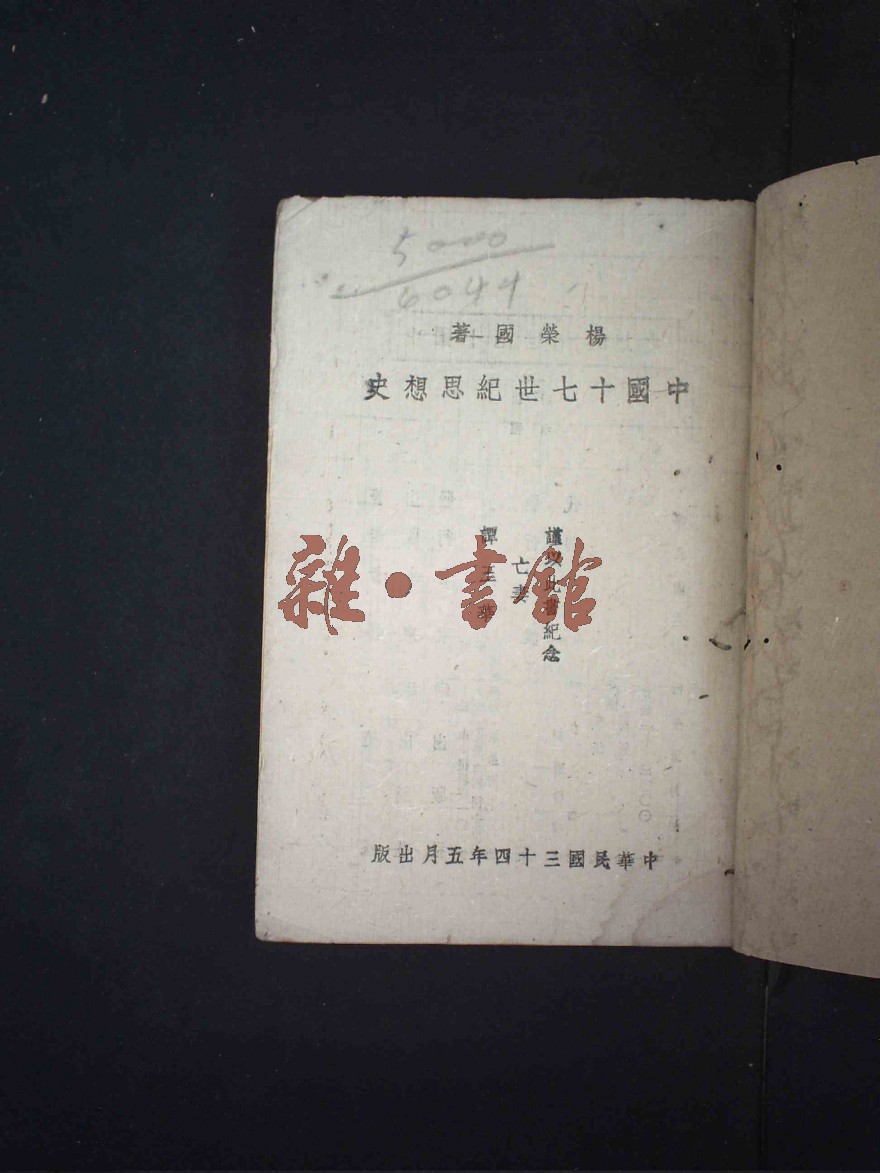 5000
6044
楊榮國著
中國十七世紀思想史
謹以此書紀念
亡妻
譚玉華
雜·書館
中華民國三十四年五月出版